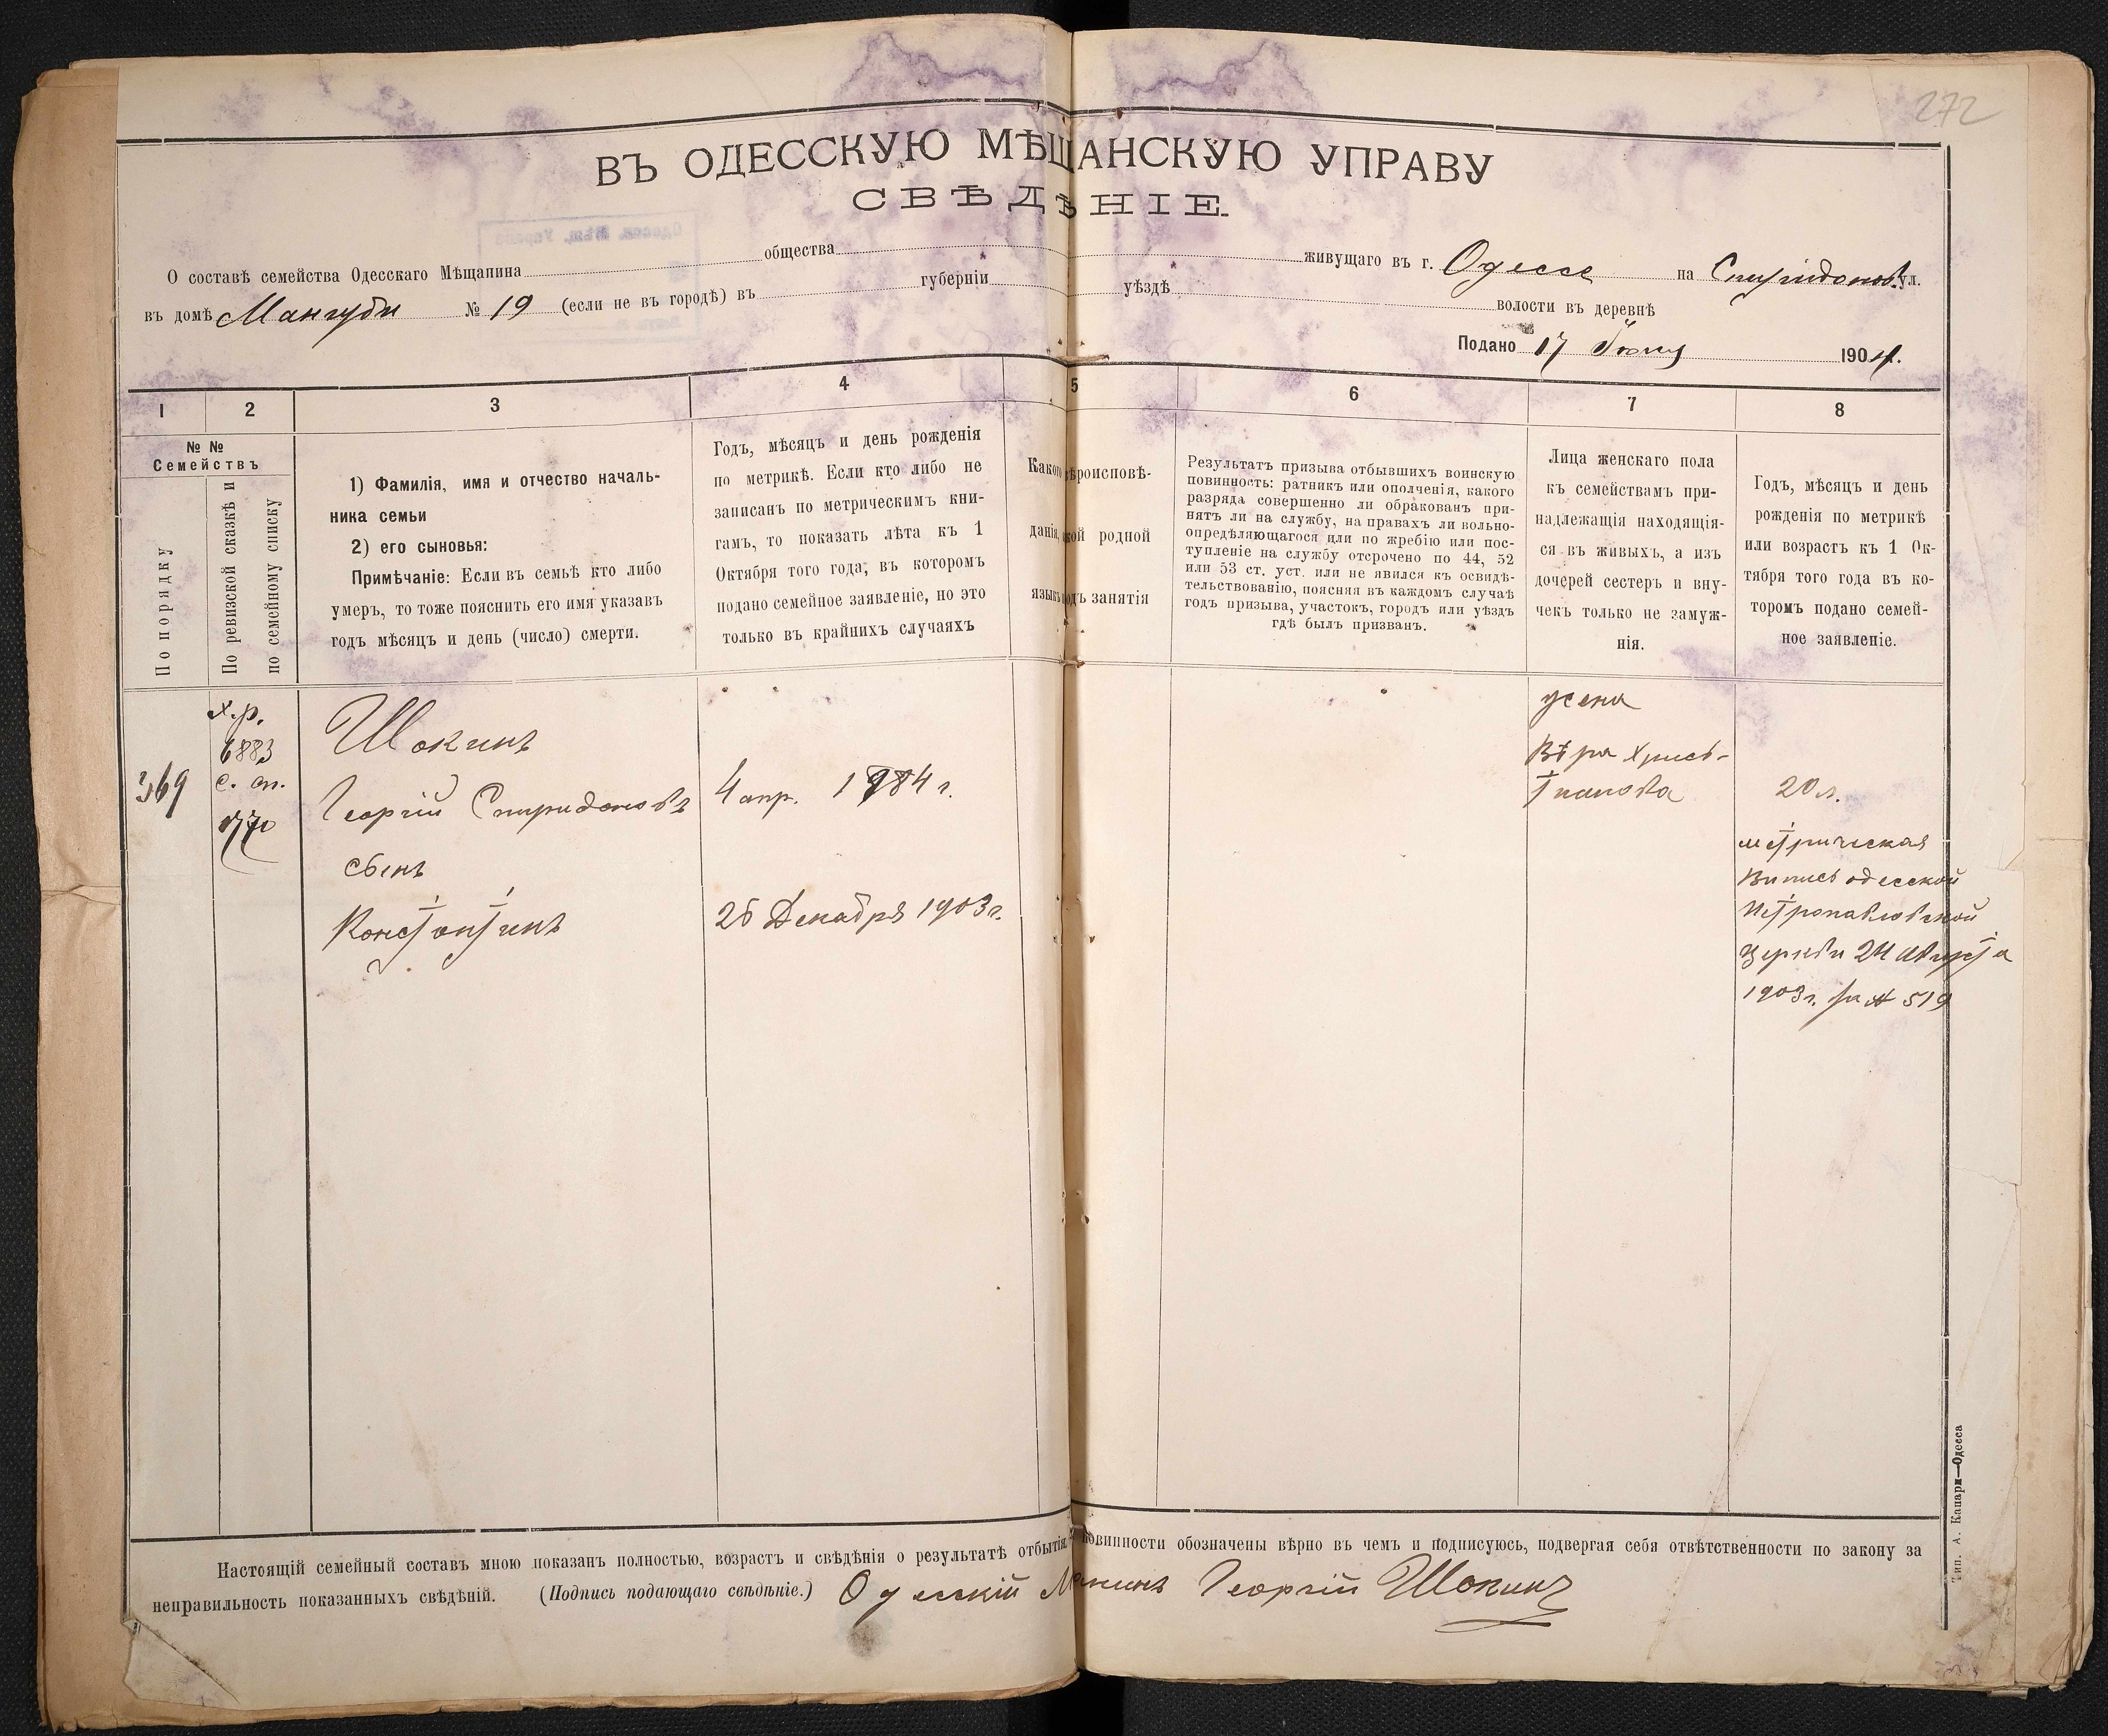 272
ВЪ ОДЕССКУЮ МѢЩАНСКУЮ УПРАВУ
СВѢДѢНІЕ.
О составѣ семейства Одесскаго Мѣщанина общества живущаго въ г. Одессе на Спиридонов. ул.
въ домѣ Мангуби № 19 (если не въ городѣ) въ губерніи уѣздѣ волости въ деревнѣ
Подано 17 Іюня 1904.
1 2 3 4 5 6 7 8
№ №
Семействъ
По порядку
По ревизской сказкѣ и
по семейному списку
1) Фамилія, имя и отчество началь-
ника семьи
2) его сыновья:
Примѣчаніе: Если въ семьѣ кто либо
умеръ, то тоже пояснить его имя указавъ
годъ мѣсяцъ и день (число) смерти.
Годъ, мѣсяцъ и день рожденія
по метрикѣ. Если кто либо не
записанъ по метрическимъ кни-
гамъ, то показать лѣта къ 1
Октября того года, въ которомъ
подано семейное заявленіе, но это
только въ крайнихъ случаяхъ
Какого вѣроисповѣ-
данія, какой родной
языкъ родъ занятія
Результатъ призыва отбывшихъ воинскую
повинность: ратникъ или ополченія, какого
разряда совершенно ли обракованъ при-
нятъ ли на службу, на правахъ ли вольно-
опредѣляющагося или по жребію или пос-
тупленіе на службу отсрочено по 44, 52
или 53 ст. уст. или не явился къ освидѣ-
тельствованію, поясняя въ каждомъ случаѣ
годъ призыва, участокъ, городъ или уѣздъ
гдѣ былъ призванъ.
Лица женскаго пола
къ семействамъ при-
надлежащія находящія-
ся въ живыхъ, а изъ
дочерей сестеръ и вну-
чекъ только не замуж-
нія.
Годъ, мѣсяцъ и день
рожденія по метрикѣ
или возрастъ къ 1 Ок-
тября того года въ ко-
торомъ подано семей-
ное заявленіе.
369
х.р.
1883
с. сп.
1770
Шокинъ
Георгій Спиридоновъ
4 апр. 1884 г.
сынъ
Константинъ
26 Декабря 1903 г.
жена
Вѣра Хрись-
тианова
20 л.
метрическая
Випись одесской
Петропавловской
Церкви 24 Августа
1903 г. за № 519
Настоящій семейный составъ мною показанъ полностью, возрастъ и свѣдѣнія о результатѣ отбытія повинности обозначены вѣрно въ чемъ и подписуюсь, подвергая себя отвѣтственности по закону за
неправильность показанныхъ свѣдѣній. (Подпись подающаго свѣдѣніе.) Одесскій Мещанинъ Георгій Шокинъ
Тип. А. Капари—Одесса